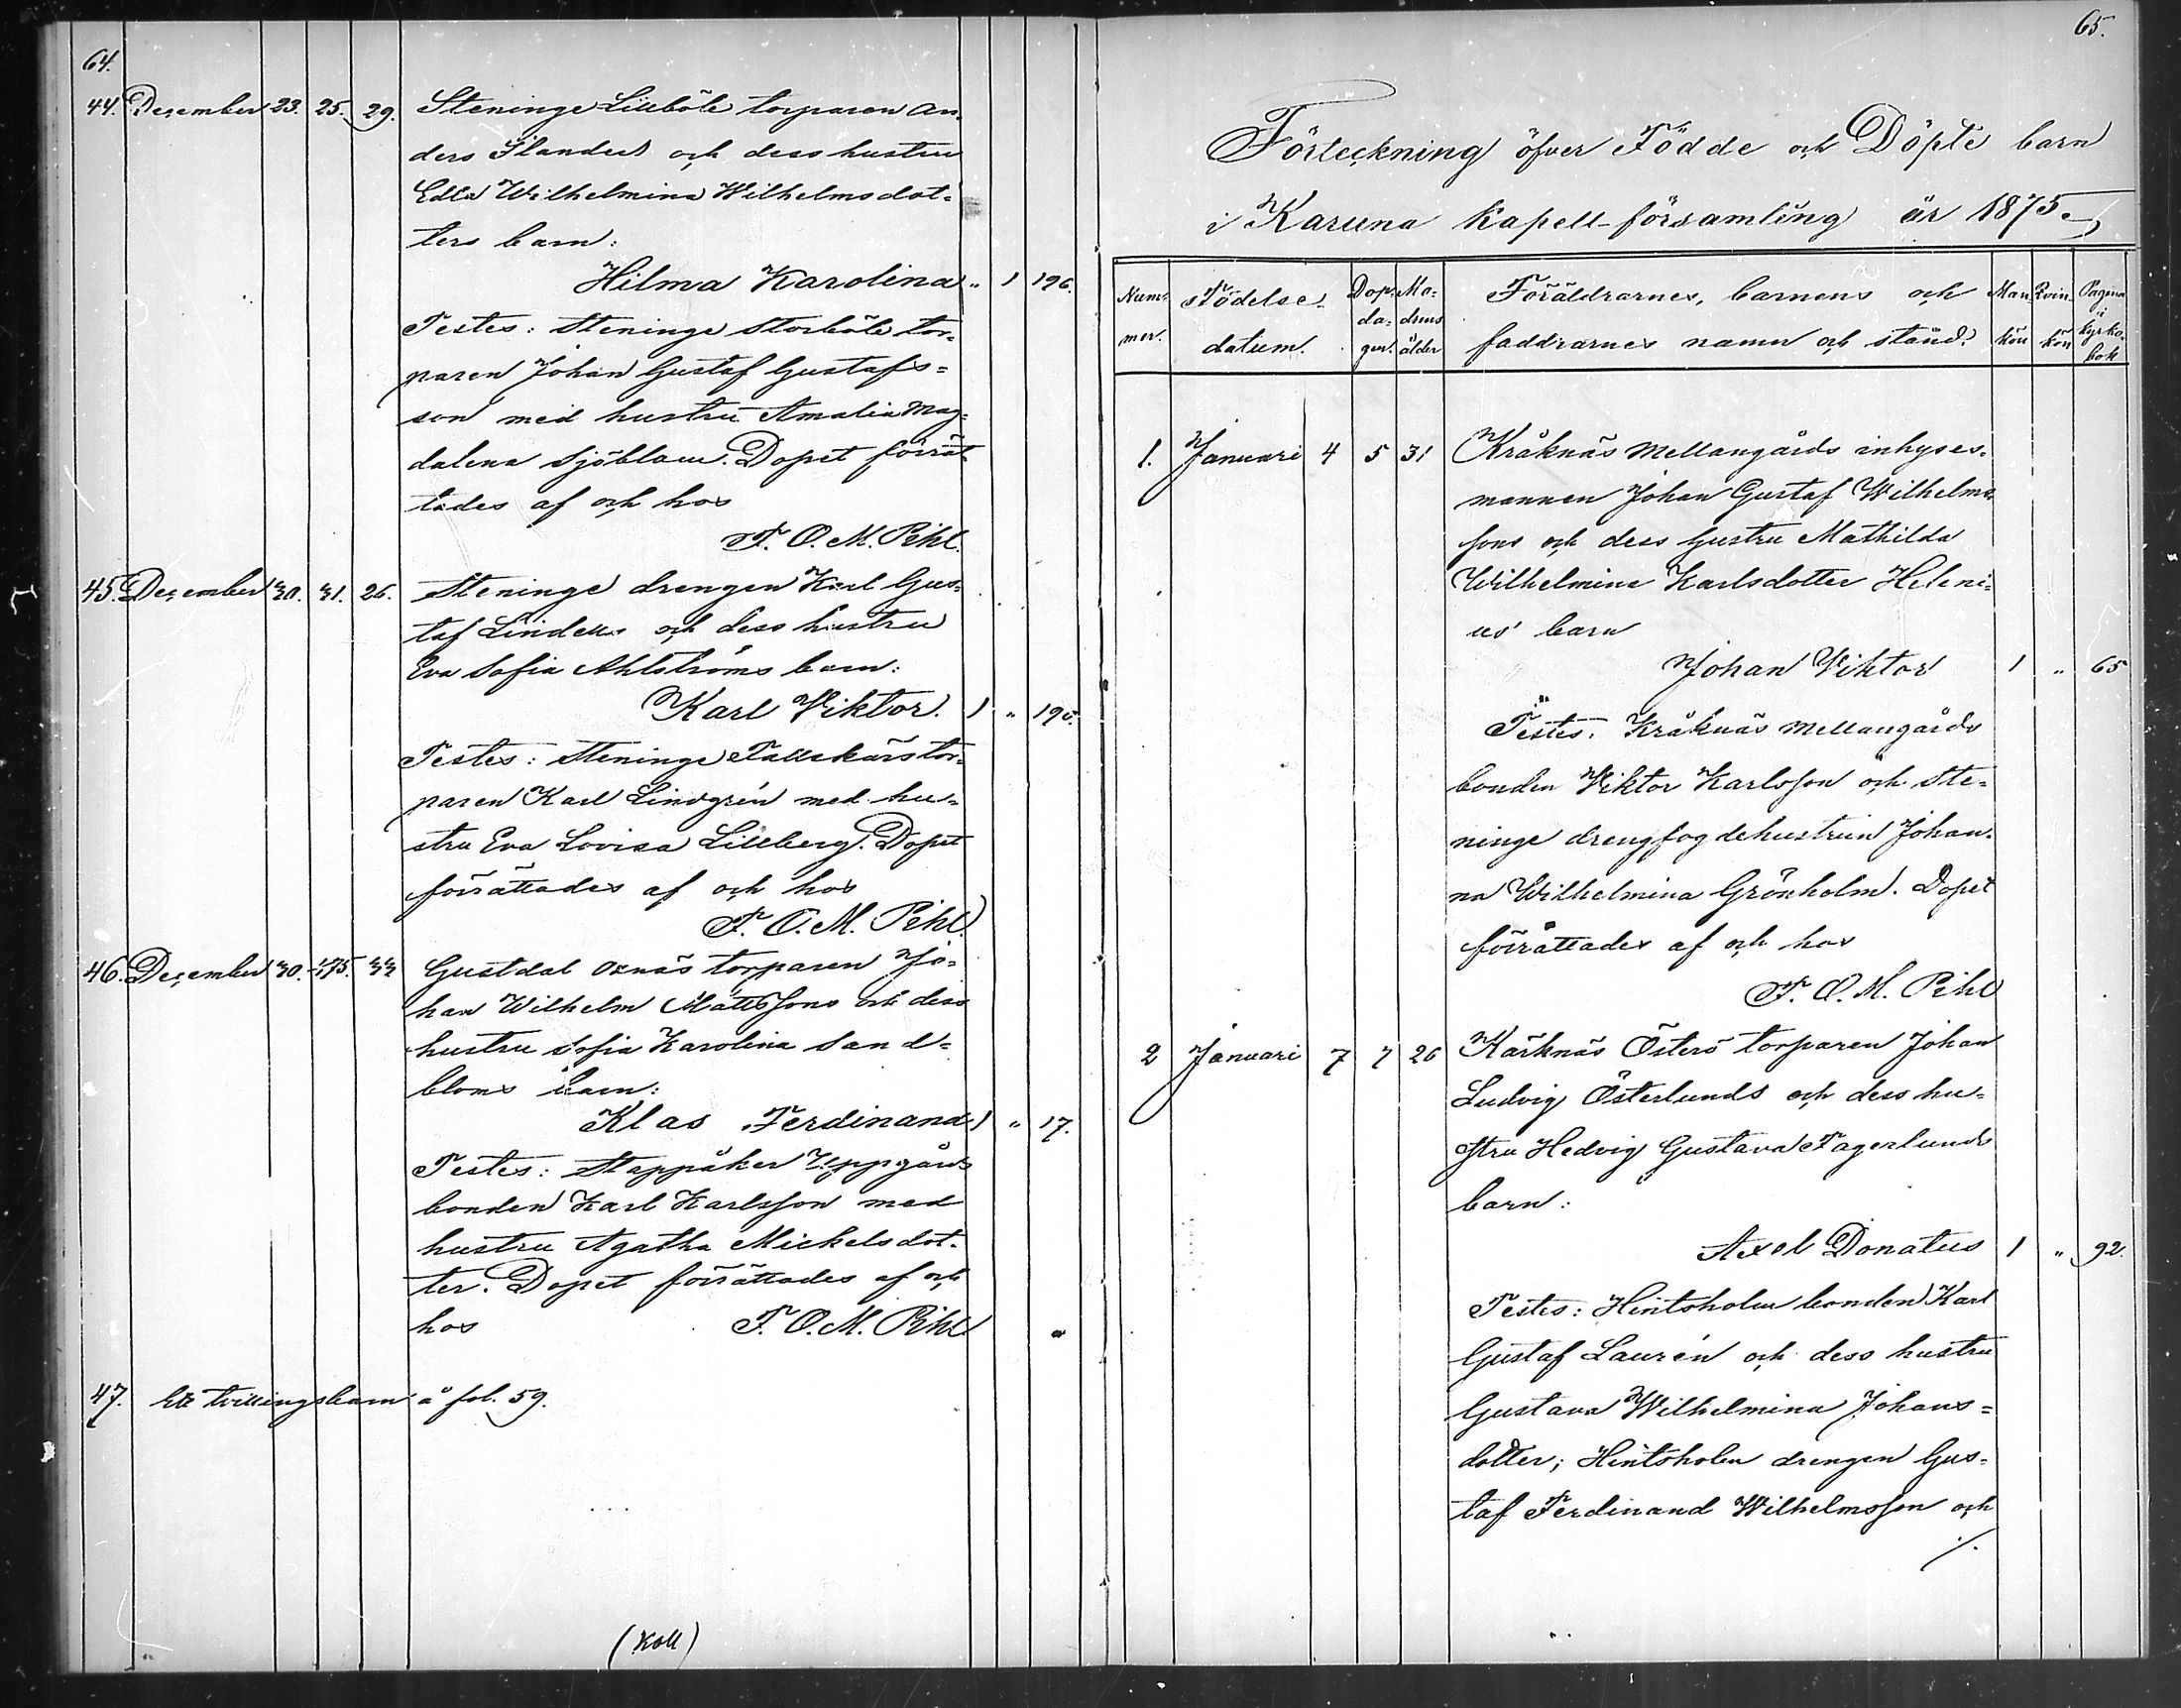 64.
44. December 23. 25. 29. Steninge Lillböle torparen An-
ders Ilanders och dess hustru
Edla Wilhelmina Wilhelmsdot=
ters barn:
Hilma Karolina " 1 196.
Testes: Steninge Storböle tor-
paren Johan Gustaf Gustafs=
son med hustru Amalia Mag-
dalena Sjöblom. Dopet förrät-
tades af och hos
F. O. M. Pihl.
45. December 30. 31. 26. Steninge drengen Karl Gus-
taf Lindells och dess hustru
Eva Sofia Ahlströms barn:
Karl Viktor. 1 " 195.
Testes: Steninge Tallskärs tor-
paren Karl Lindgrén med hu-
stru Eva Lovisa Lillberg. Dopet
förrättades af och hos
F. O. M. Pihl.
46. December 30. 33 Gustdal Oxnäs torparen Jo-
han Wilhelm Mattssons och dess
hustru Sofia Karolina Sand-
bloms barn:
Klas Ferdinand 1 " 17.
Testes: Stappåker Uppgårds
bonden Karl Karlsson med
hustru Agatha Mickelsdot-
ter. Dopet förrättades af och
hos F. O. M. Pihl
47. Ett tvillingsbarn å fol. 59.
(Koll)
65.
Förteckning öfver Födde och Döpte barn
i Karuna Kapell-församling år 1875.
Num- Födelse- Dop- Mo- Föräldrarnes, barnens och Man- Qvin- Pagina
da- drens i
mer. datum. gar. ålder faddrarnes namn och stånd. kön kön kyrko-
bok
1. Januari 4 5 31 Kråknäs Mellangårds inhyses-
mannen Johan Gustaf Wilhelms-
sons och dess hustru Mathilda
Wilhelmina Karlsdotter Heleni=
us' barn
Johan Viktor 1 " 65
Testes: Kråknäs Mellangårds
bonden Viktor Karlsson och Ste=
ninge drengfogdehustrun Johan-
na Wilhelmina Grönholm. Dopet
förrättades af och hos
F. O. M. Pihl
2 Januari 7 7 26 Kärknäs Österö torparen Johan
Ludvig Österlunds och dess hu-
stru Hedvig Gustava Fagerlunds
barn:
Axel Donatus 1 " 92.
Testes: Hintsholm bonden Karl
Gustaf Laurén och dess hustru
Gustava Wilhelmina Johans=
dotter; Hintsholm drengen Gus-
taf Ferdinand Wilhelmsson och
./.